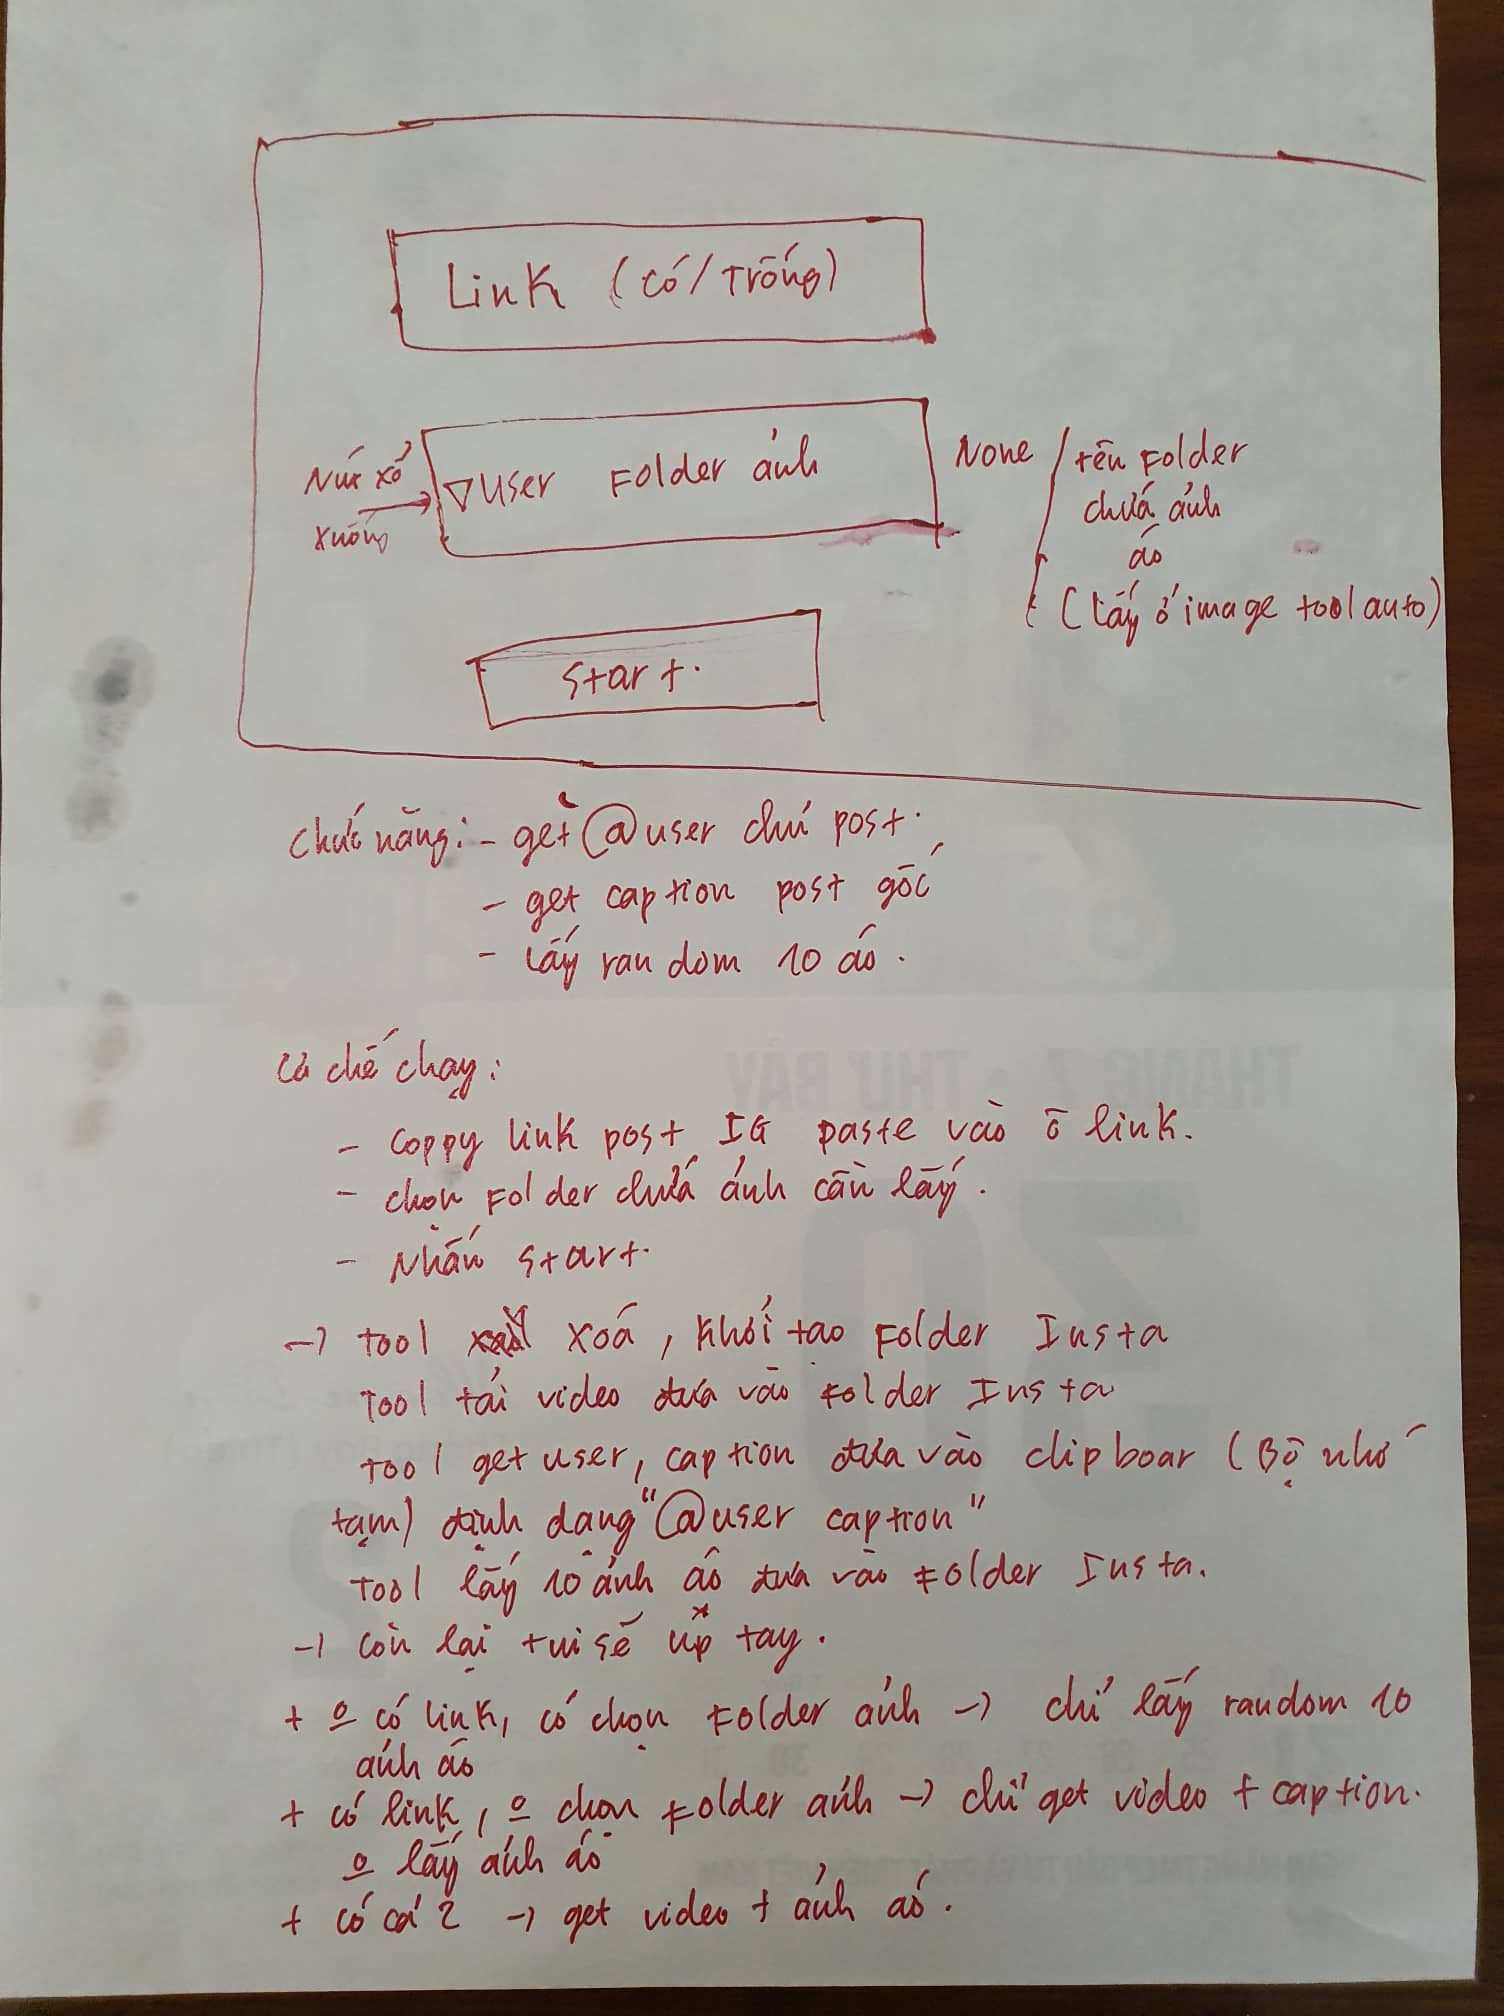 Link (có/Trống)
Nút xổ
xuống
▽User Folder ảnh
None / tên Folder
chứa ảnh
áo
(lấy ở image tool auto)
Start.
Chức năng: - get @user chủ post.
- get caption post gốc
- lấy random 10 áo.
Cơ chế chạy:
- Coppy link post IG paste vào ô link.
- chọn Folder chứa ảnh cần lấy.
- Nhấn start.
-> tool xoá, khởi tạo Folder Insta
Tool tải video đưa vào Folder Insta
tool get user, caption đưa vào clipboar (Bộ nhớ
tạm) định dạng "@user caption"
Tool lấy 10 ảnh áo đưa vào Folder Insta.
-> còn lại tui sẽ up tay.
+ 0 có link, có chọn Folder ảnh -> chỉ lấy random 10
ảnh áo
+ có link, 0 chọn Folder ảnh -> chỉ get video + caption.
0 lấy ảnh áo
+ có cả 2 -> get video + ảnh áo.
THÁNG 7 - THỨ BẢY
30
2